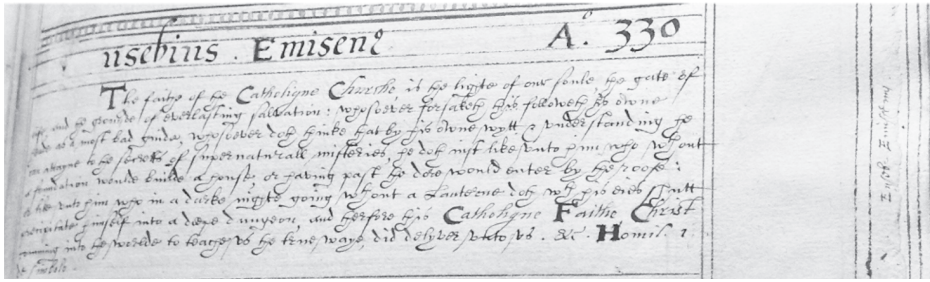 usebius . Emiseno A.o 330
The faithe of the Catholique Churche is the lighte of our soule, the gate of
and the grounde of everlasting salvation: whosoever forsaketh this followeth his owne
as a most bad guide, whosoever doth thinke that by his owne wytt & understanding he
attayne to the secrets of supernaturall misteries, he doth iust like unto him who without
a foundation woulde builde a house or having past the dore would enter by the roofe:
like unto him who in a darke nighte going without a Lanterne doth with his eies shutt
precipitate himself into a depe dungeon, and therfore this Catholique Faithe Christ
comming into the worlde to teache us the true waye, did delyver unto us . &c. Homil. 1.
de simbolo.